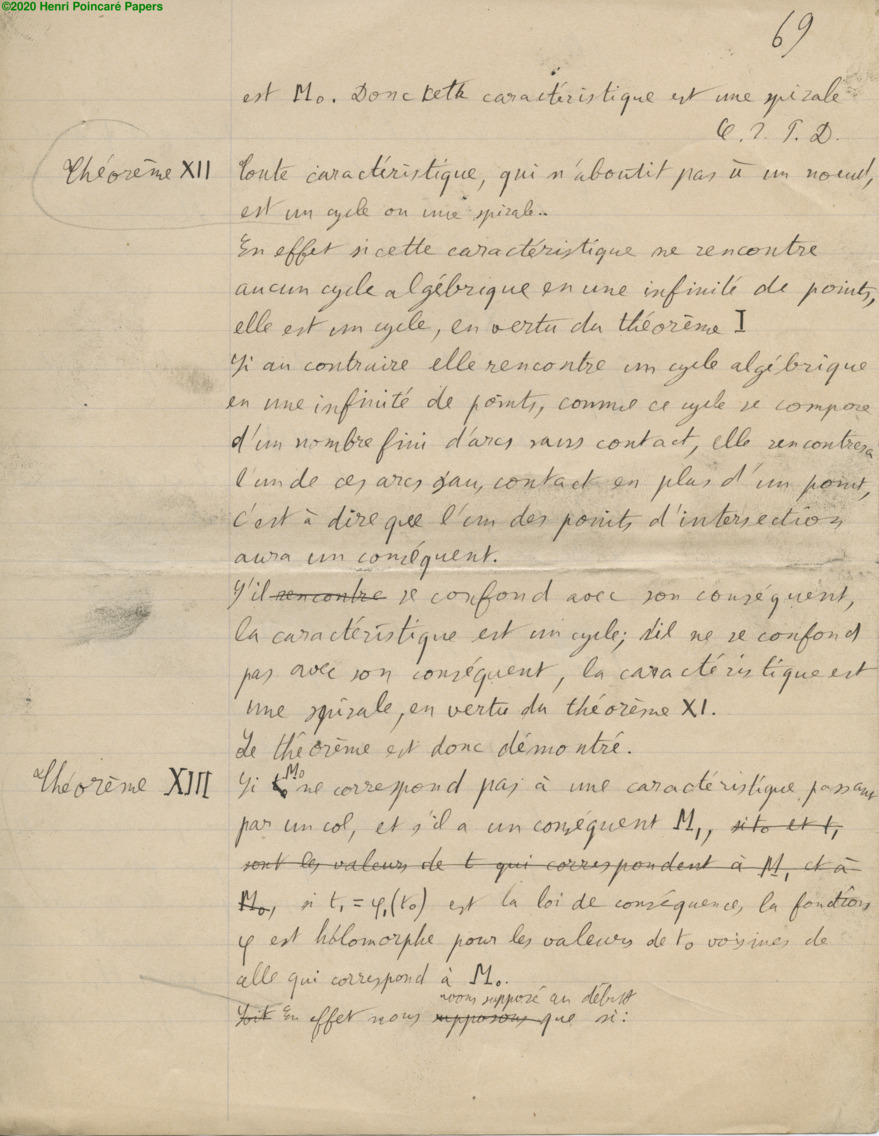 ©2020 Henri Poincaré Papers
69
est M₀. Donc cette caractéristique est une spirale
C. Q. F. D.
Théorème XII Toute caractéristique, qui n'aboutit pas à un noeud,
est un cycle ou une spirale..
En effet si cette caractéristique ne rencontre
aucun cycle algébrique en une infinité de points,
elle est un cycle, en vertu du théorème I
Si au contraire elle rencontre un cycle algébrique
en une infinité de points, comme ce cycle se compose
d'un nombre fini d'arcs sans contact, elle rencontrera
l'un de ces arcs sans contact en plus d'un point,
c'est à dire que l'un des points d'intersection
aura un conséquent.
S'il rencontre se confond avec son conséquent,
la caractéristique est un cycle; s'il ne se confond
pas avec son conséquent, la caractéristique est
une spirale, en vertu du théorème XI.
Le théorème est donc démontré.
Théorème XIII Si M₀ ne correspond pas à une caractéristique passant
par un col, et s'il a un conséquent M₁, si t₀ et t₁
sont les valeurs de t qui correspondent à M₁ et à
M₀, si t₁ = φ₁(t₀) est la loi de conséquence, la fonction
φ est holomorphe pour les valeurs de t₀ voisines de
celle qui correspond à M₀.
avons supposé au début
Soit En effet nous supposons que si: